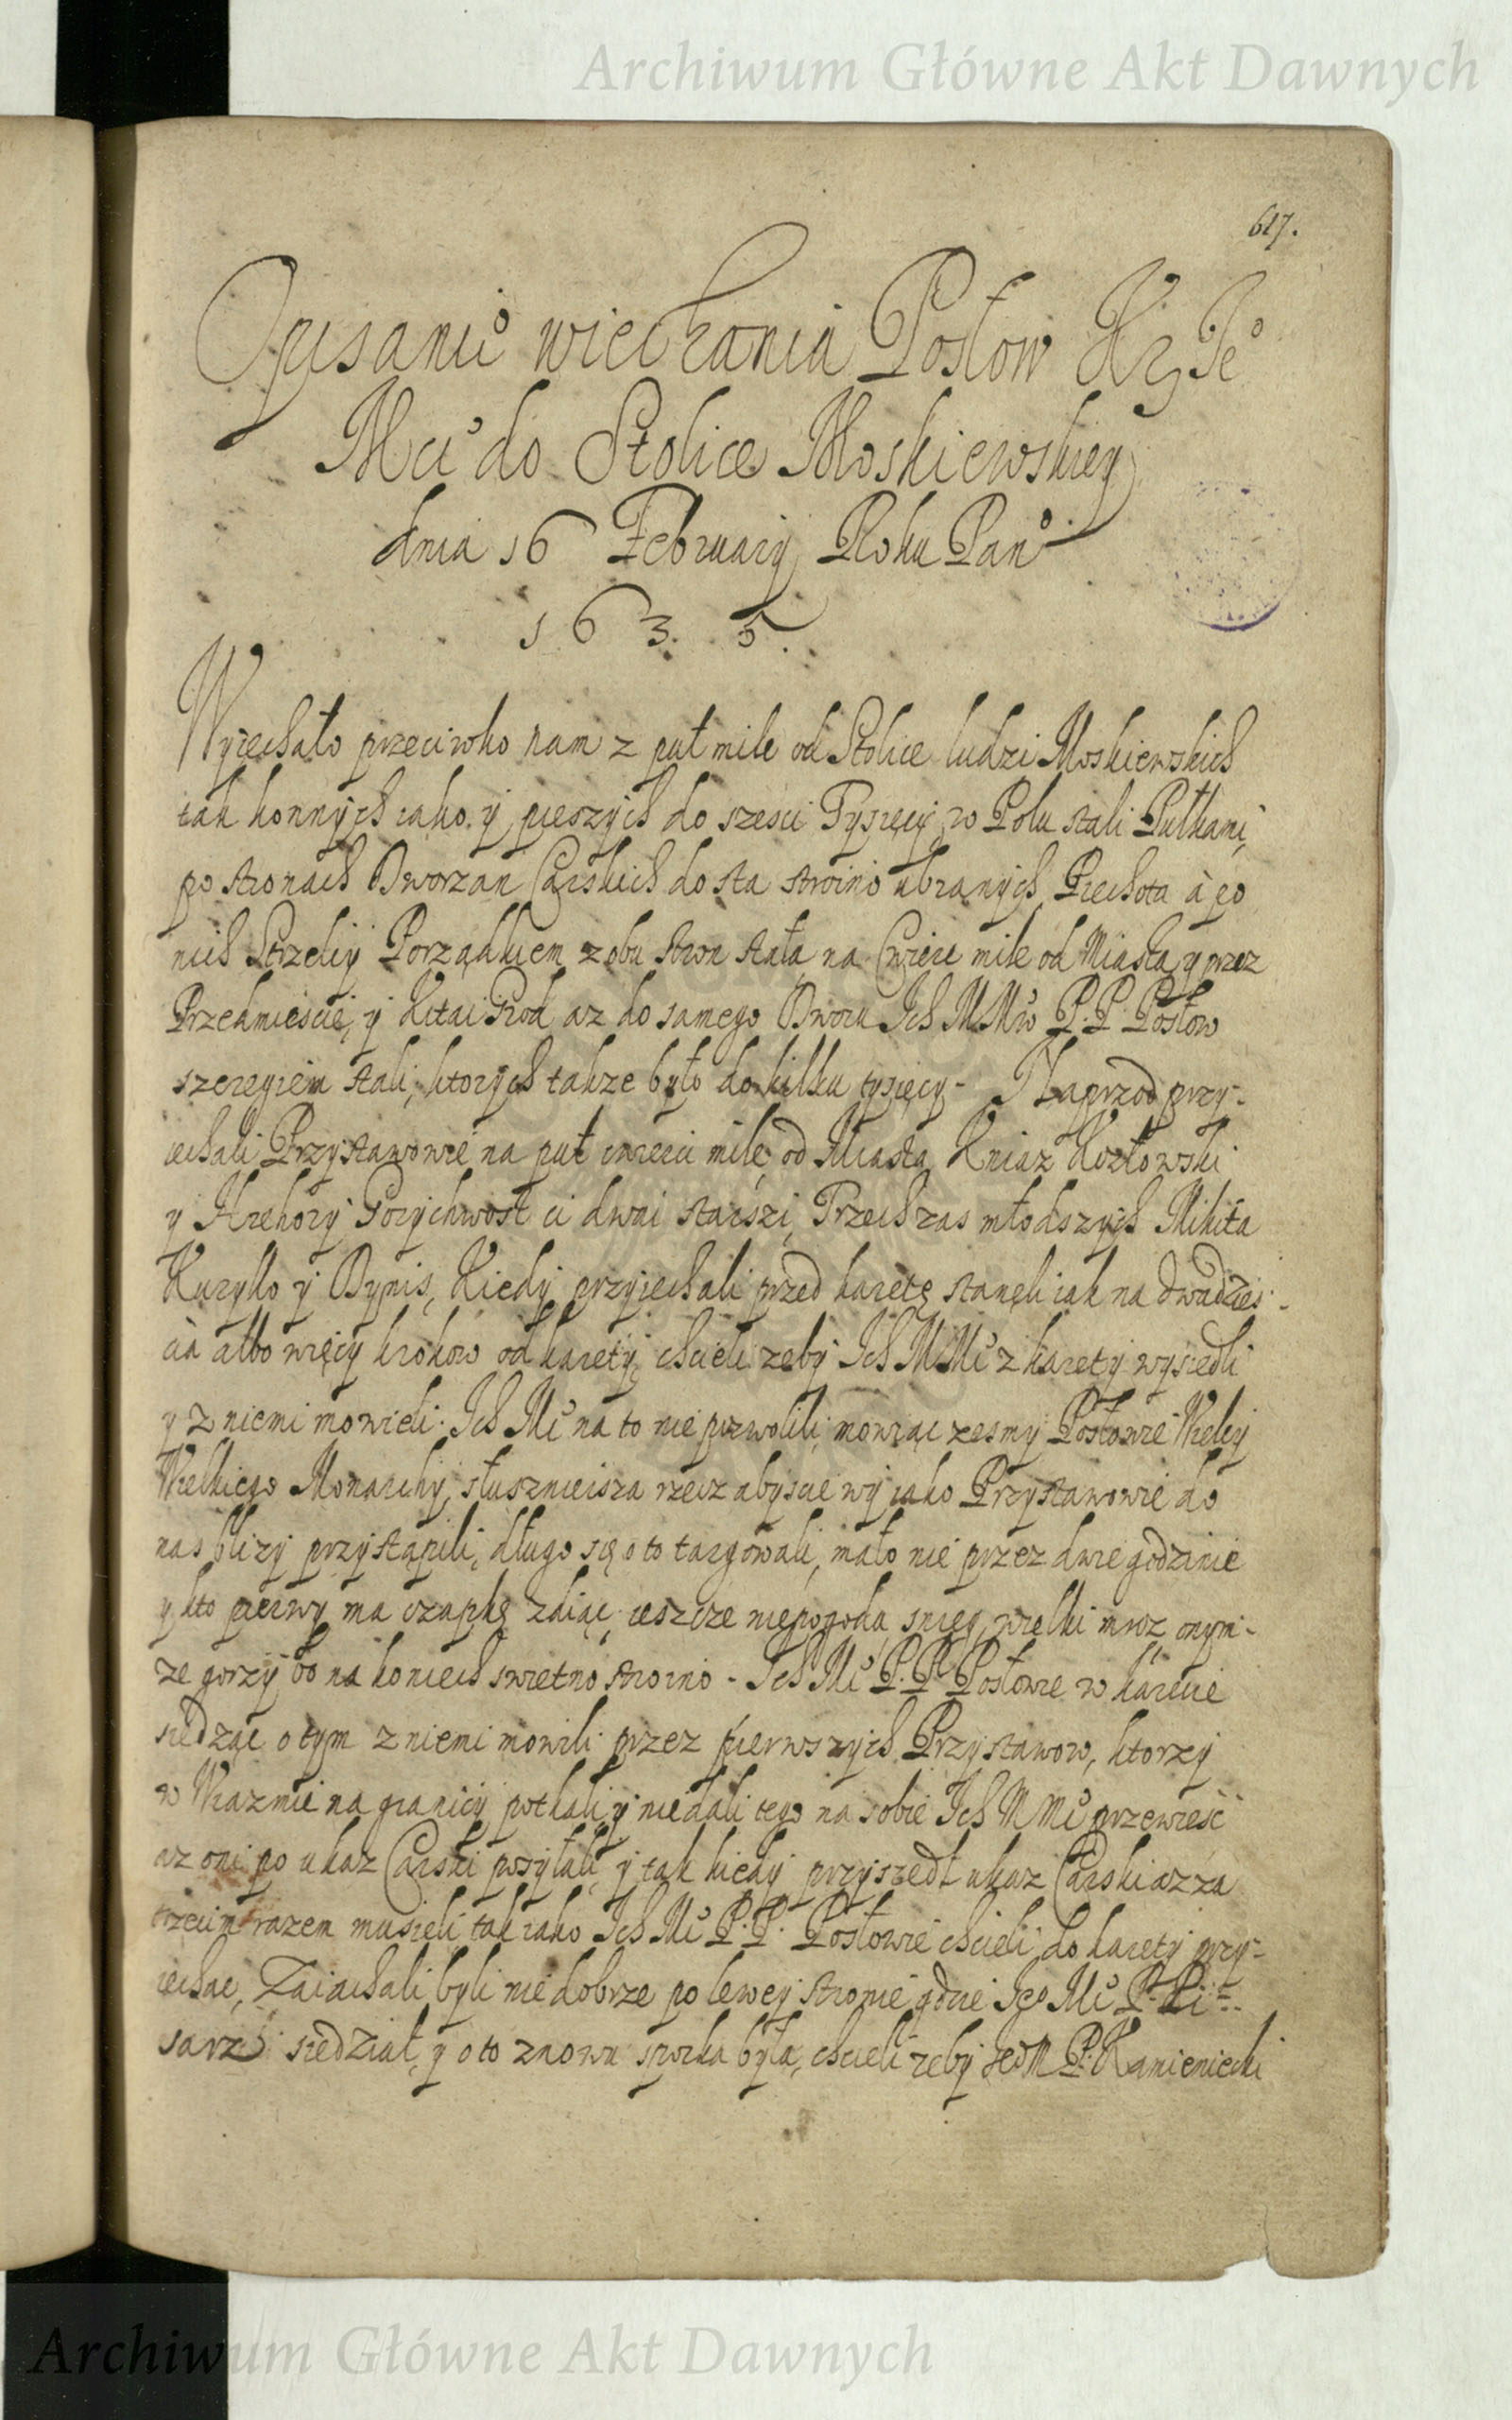 Archiwum Główne Akt Dawnych
617.
Opisanie wiechania Posłow K. Je
Mci do Stolice Moskiewskiey
dnia 16 February Roku Pan
1635.
Wyiechało przeciwko nam z puł mile od Stolice ludzi Moskiewskich
tak konnych iako y pieszych do szesci Tysięcy, w Polu stali Pułkami,
po stronach Dworzan Carskich do sta stroino ubranych, Piechota à po
nich Strzelcy Porządkiem z obu stron stała na Cwierc mile od Miasta y przez
Przedmiescie, y Kitai Grod az do samego Dworu Ich MMw P.P. Posłow
szeregiem stali, ktorych takze było do kilku tysięcy - Naprzod przy-
iechali Przystawowie na puł cwierci mile od Miasta Kniaz Kozłowski
y Hrehory Gorychwost ci dwai starszi, Trzech zas młodszych Mikita
Kuryłło y Dynis, Kiedy przyiechali przed karetę stanęli iak na dwadzies-
cia albo więcy krokow od karety, chcieli zeby Ich MMć z karety wysiedli
y z niemi mowieli. Ich Mć na to nie pozwolili, mowiąc zesmy Posłowie Wielcy
Wielkiego Monarchy, słusznieisza rzecz abyscie wy iako Przystawowie do
nas blizy przystąpili, długo się o to targowali, mało nie przez dwie godzinie
y kto pierwy ma czapkę zdiąc, ieszcze niepogoda, snieg, wielki mroz onym-
ze gorzy bo na koniech swietno stroino - Ich Mć P.P. Posłowie w karecie
siedząc o tym z niemi mowili przez pierwszych Przystawow, ktorzy
w Wiazmie na granicy potkali, y nie dali tego na sobie Ich MMć przewiesć
az oni po ukaz Carski posyłali, y tak kiedy przyszedł ukaz Carski az za
trzecim razem musieli tak iako Ich Mć P.P. Posłowie chcieli do karety przy-
iechac, Zaiachali byli nie dobrze po lewey stronie gdzie Jego Mć P. Pi-
sarz siedział, y o to znowu sprzeka była, chcieli zeby JeoM P. Kamieniecki
Archiwum Główne Akt Dawnych